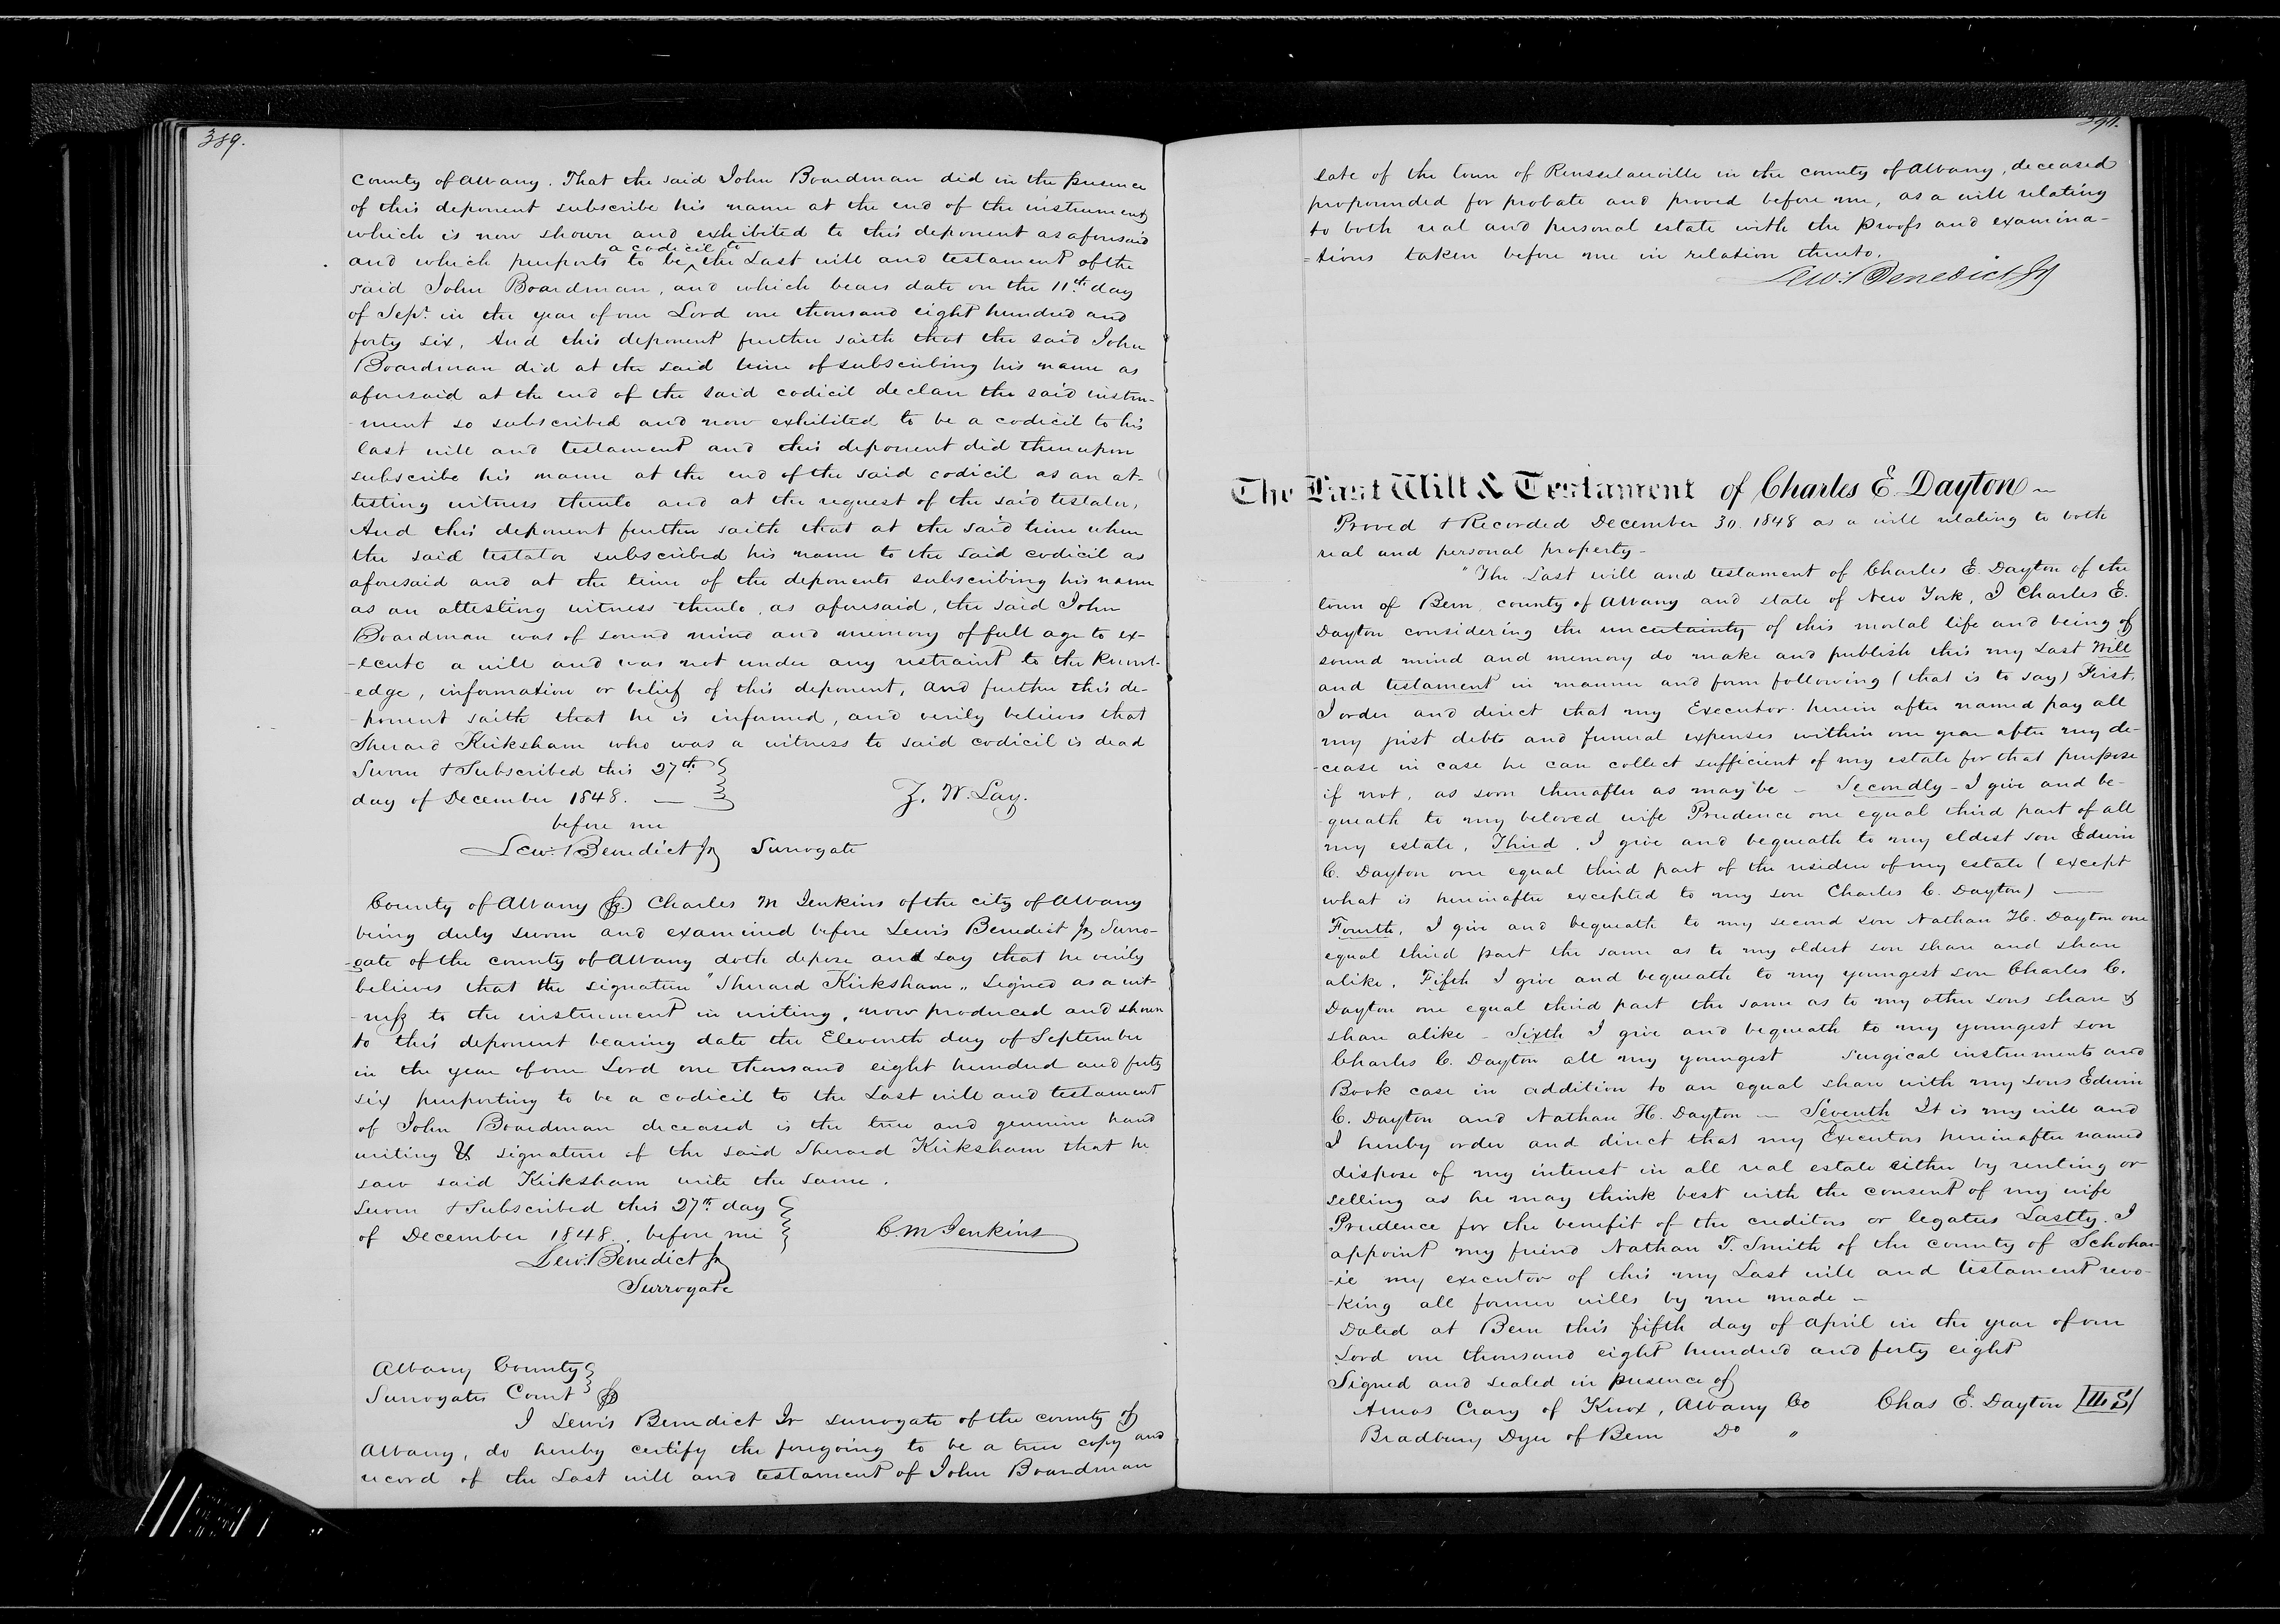 389.
County of Albany. That the said John Boardman did in the presence
of this deponent subscribe his name at the end of the instrument
which is now shown and exhibited to this deponent as aforesaid
a codicil to
and which purports to be ‸ the Last will and testament of the
said John Boardman, and which bears date on the 11th day
of Sept. in the year of our Lord one thousand eight hundred and
forty six, And this deponent further saith that the said John
Boardman did at the said time of subscribing his name as
aforesaid at the end of the said codicil declare the said instru-
-ment so subscribed and now exhibited to be a codicil to his
last will and testament and this deponent did thereupon
subscribe his name at the end of the said codicil as an at-
testing witness thereto and at the request of the said testator,
And this deponent further saith that at the said time when
the said testator subscribed his name to the said codicil as
aforesaid and at the time of the deponents subscribing his name
as an attesting witness thereto, as aforesaid, the said John
Boardman was of sound mind and memory of full age to ex-
-ecute a will and was not under any restraint to the knowl-
-edge, information or belief of this deponent, and further this de-
-ponent saith that he is informed, and verily believes that
Sherard Kirksham who was a witness to said codicil is dead
Sworn & Subscribed this 27th
day of December 1848. —
Z. W. Lay.
before me
Lew: Benedict Jr Surrogate
County of Albany ss.) Charles M Jenkins of the city of Albany
being duly sworn and examined before Lewis Benedict Jr Surro-
-gate of the county of Albany doth depose and say that he verily
believes that the signature "Sherard Kirksham" signed as a wit-
-ness to the instrument in writing, now produced and shown
to this deponent bearing date the Eleventh day of September
in the year of our Lord one thousand eight hundred and forty
six purporting to be a codicil to the Last will and testament
of John Boardman deceased is the true and genuine hand
writing & signature of the said Sherard Kirksham that he
saw said Kirksham write the same.
Sworn & Subscribed this 27th day
of December 1848. before me
C. M Jenkins
Lew: Benedict Jr
Surrogate
Albany County
Surrogates Court ss
I Lewis Benedict Jr surrogate of the county of
Albany, do hereby certify the foregoing to be a true copy and
record of the Last will and testament of John Boardman
late of the town of Rensselaerville in the county of Albany, deceased
propounded for probate and proved before me, as a will relating
to both real and personal estate with the proofs and examina-
=tions taken before me in relation thereto.
Lew: Benedict Jr
The Last Will & Testament of Charles E. Dayton ~
Proved & Recorded December 30. 1848 as a will relating to both
real and personal property -
"The Last will and testament of Charles E. Dayton of the
town of Bern, county of Albany and state of New York, I Charles E.
Dayton considering the uncertainty of this mortal life and being of
sound mind and memory do make and publish this my Last Will
and testament in manner and form following (that is to say) First,
I order and direct that my Executor herein after named pay all
my just debts and funeral expenses within one year after my de-
-cease in case he can collect sufficient of my estate for that purpose
if not, as soon thereafter as may be — Secondly - I give and be-
queath to my beloved wife Prudence one equal third part of all
my estate, Third, I give and bequeath to my eldest son Edwin
C. Dayton one equal third part of the residue of my estate (except
what is hereinafter excepted to my son Charles C. Dayton) —
Fourth, I give and bequeath to my second son Nathan H. Dayton one
equal third part the same as to my oldest son share and share
alike. Fifth I give and bequeath to my youngest son Charles C.
Dayton one equal third part the same as to my other sons share &
share alike - Sixth I give and bequeath to my youngest son
Charles C. Dayton all my youngest surgical instruments and
Book case in addition to an equal share with my sons Edwin
C. Dayton and Nathan H. Dayton — Seventh It is my will and
I hereby order and direct that my Executors hereinafter named
dispose of my interest in all real estate either by renting or
selling as he may think best with the consent of my wife
Prudence for the benefit of the creditors or legatees Lastly. I
appoint my friend Nathan T. Smith of the county of Schohar-
-ie my executor of this my Last will and testament revo-
-king all former wills by me made ~
Dated at Bern this fifth day of April in the year of our
Lord one thousand eight hundred and forty eight
Signed and sealed in presence of
Amos Crary of Knox, Albany Co Chas E. Dayton
Bradbury Dyer of Bern Do "